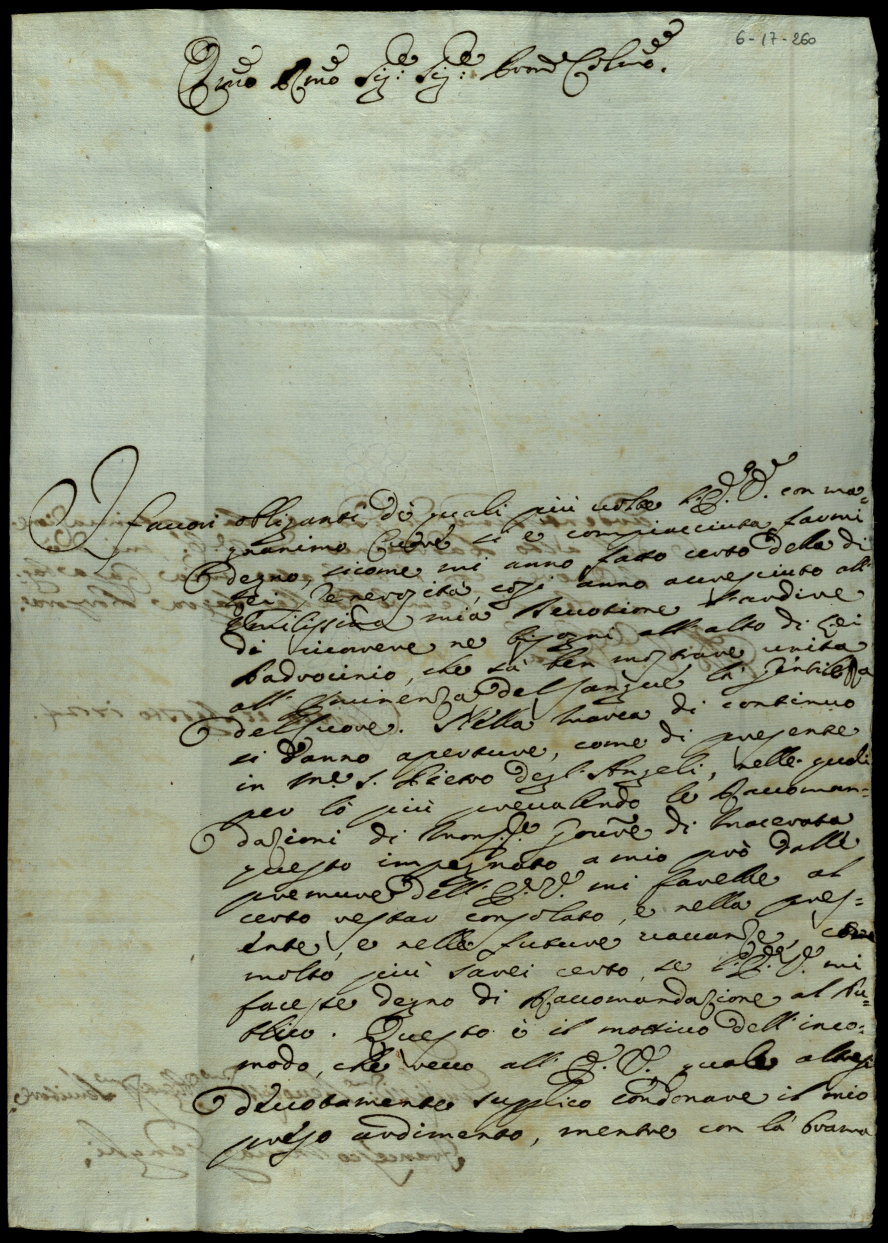 6-17-260
Emo Rmo Sig:re Sig:re Prone Colmo.
I favori obliganti, di quali più volte l'E. V. con ma=
gnanimo Cuore si è compiacciuta farmi
degno, sicome mi anno fatto certo della di
Lei Generosità, così anno accresciuto all'
Umilissima mia Devotione l'ardire
di ricorrere ne bisogni all'alto di Lei
Padrocinio, che sà ben mostrare unita
all'Eminenza del sangue la Gentilezza
del Cuore. Nella Marca di continuo
si danno aperture, come di presente
in M.e S. Pietro degl'Angeli, nelle quali
per lo più prevalendo le Raccoman=
dazioni di Mons.re Gov.re di Macerata
questo impegnato a mio prò dalle
premure dell'E. V. mi farebbe al
certo restar consolato, e nella pres=
ente, e nelle future vacanze, come
molto più sarei certo, se l'E. V. mi
facesse degno di Raccomandazione al Pu=
blico. Questo è il mottivo dell'inco=
modo, che reco all'E. V. quale altresi
devotamente supplico condonare il mio
preso ardimento, mentre con la brama